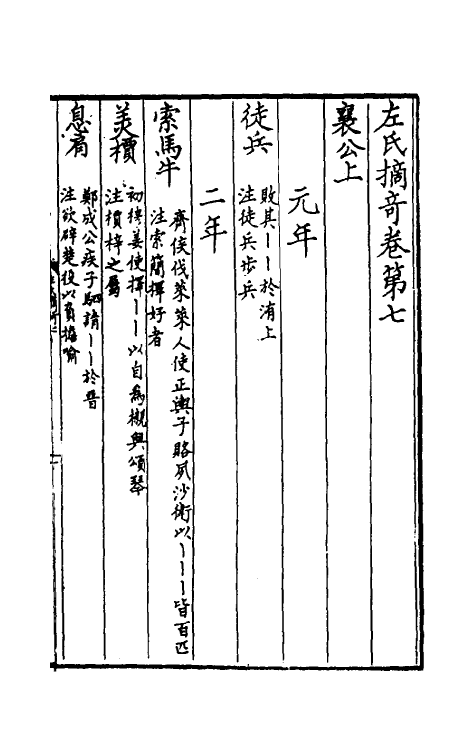 左氏摘奇卷第七
襄公上
元年
徒兵
敗其丨丨於洧上
注徒兵步兵
二年
索馬牛
齊侯伐萊萊人使正輿子賂夙沙衛以丨丨丨皆百匹
注索簡擇好者
美檟
初穆姜使擇丨丨以自為櫬與頌琴
注檟梓之屬
息肩
鄭成公疾子駟請丨丨於晋
注欲辟楚役以負擔喻